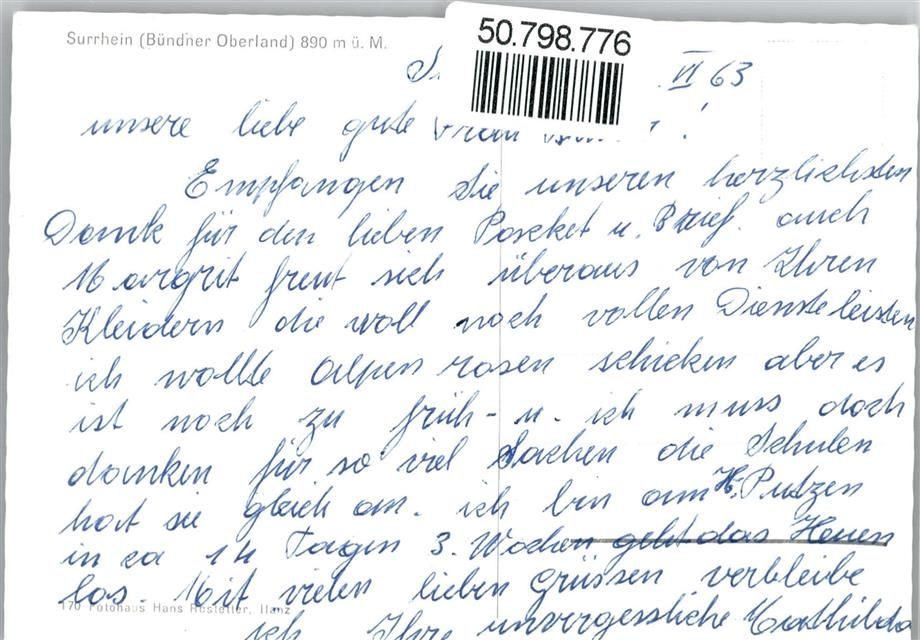 Surrhein (Bündner Oberland) 890 m ü. M.
50.798.776
VI 63
unsere liebe gute Frau !
Empfangen Sie unseren herzlichsten
Dank für den lieben Pasket u. Brief. auch
Margrit freut sich überaus von Ihren
Kleidern die woll noch vollen Dienste leisten
ich wollte Alpen rosen schicken aber es
ist noch zu früh - u. ich muss doch
danken für so viel Sachen die Schulen
hat sie gleich an. ich bin am H. Putzen
in za 14 Tagen 3. Wochen geht das Heuen
los. Mit vielen lieben Grüssen verbleibe
170 Fotohaus Hans Rostetter, Ilanz
ich Ihre unvergessliche Mathilda